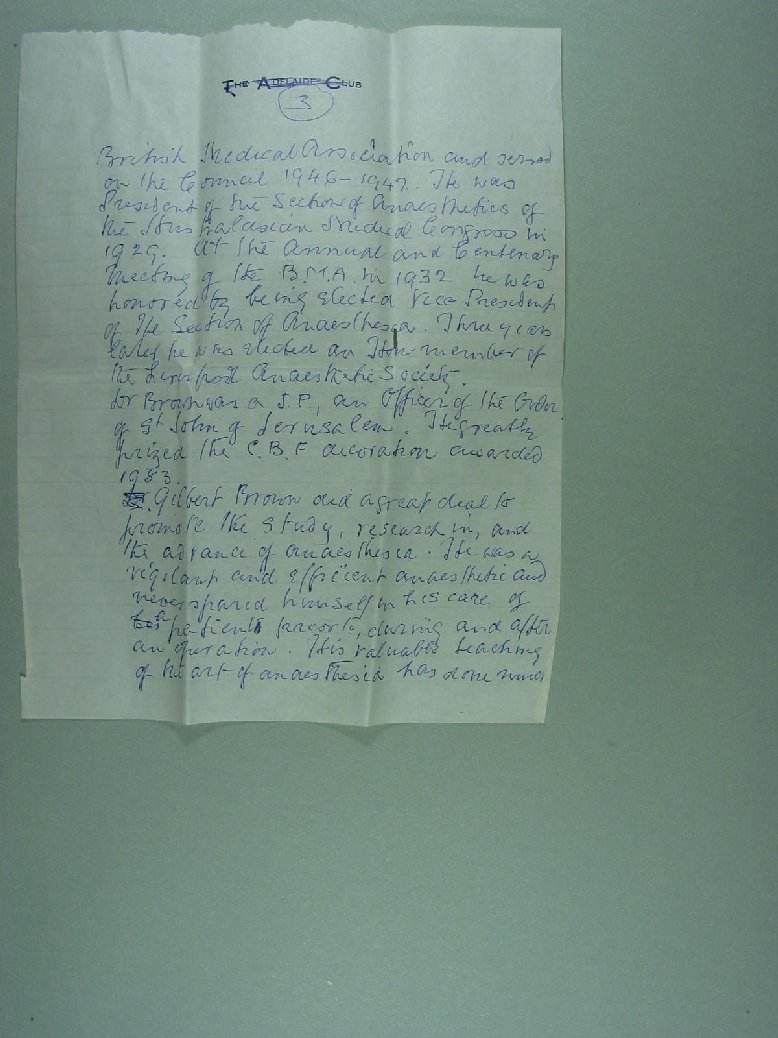 THE ADELAIDE CLUB
3
British Medical Association and served
on the Council 1946-1947. He was
President of the Section of Anaesthetics of
the Australasian Medical Congress in
1929. At the Annual and Centenary
Meeting of the B.M.A. in 1932 he was
honored by being elected Vice President
of the Section of Anaesthesia. Three years
later he was elected an Hon member of
the Liverpool Anaesthetic Society.
Dr Brown was a J.P., an Officer of the Order
of St John of Jerusalem. He greatly
prized the C.B.E decoration awarded
1953.
Gilbert Brown did a great deal to
promote the study, research in, and
the advance of anaesthesia. He was a
vigilant and efficient anaesthetic and
never spared himself in his care of
patients prior to, during and after
an operation. His valuable teaching
of the art of anaesthesia has done much